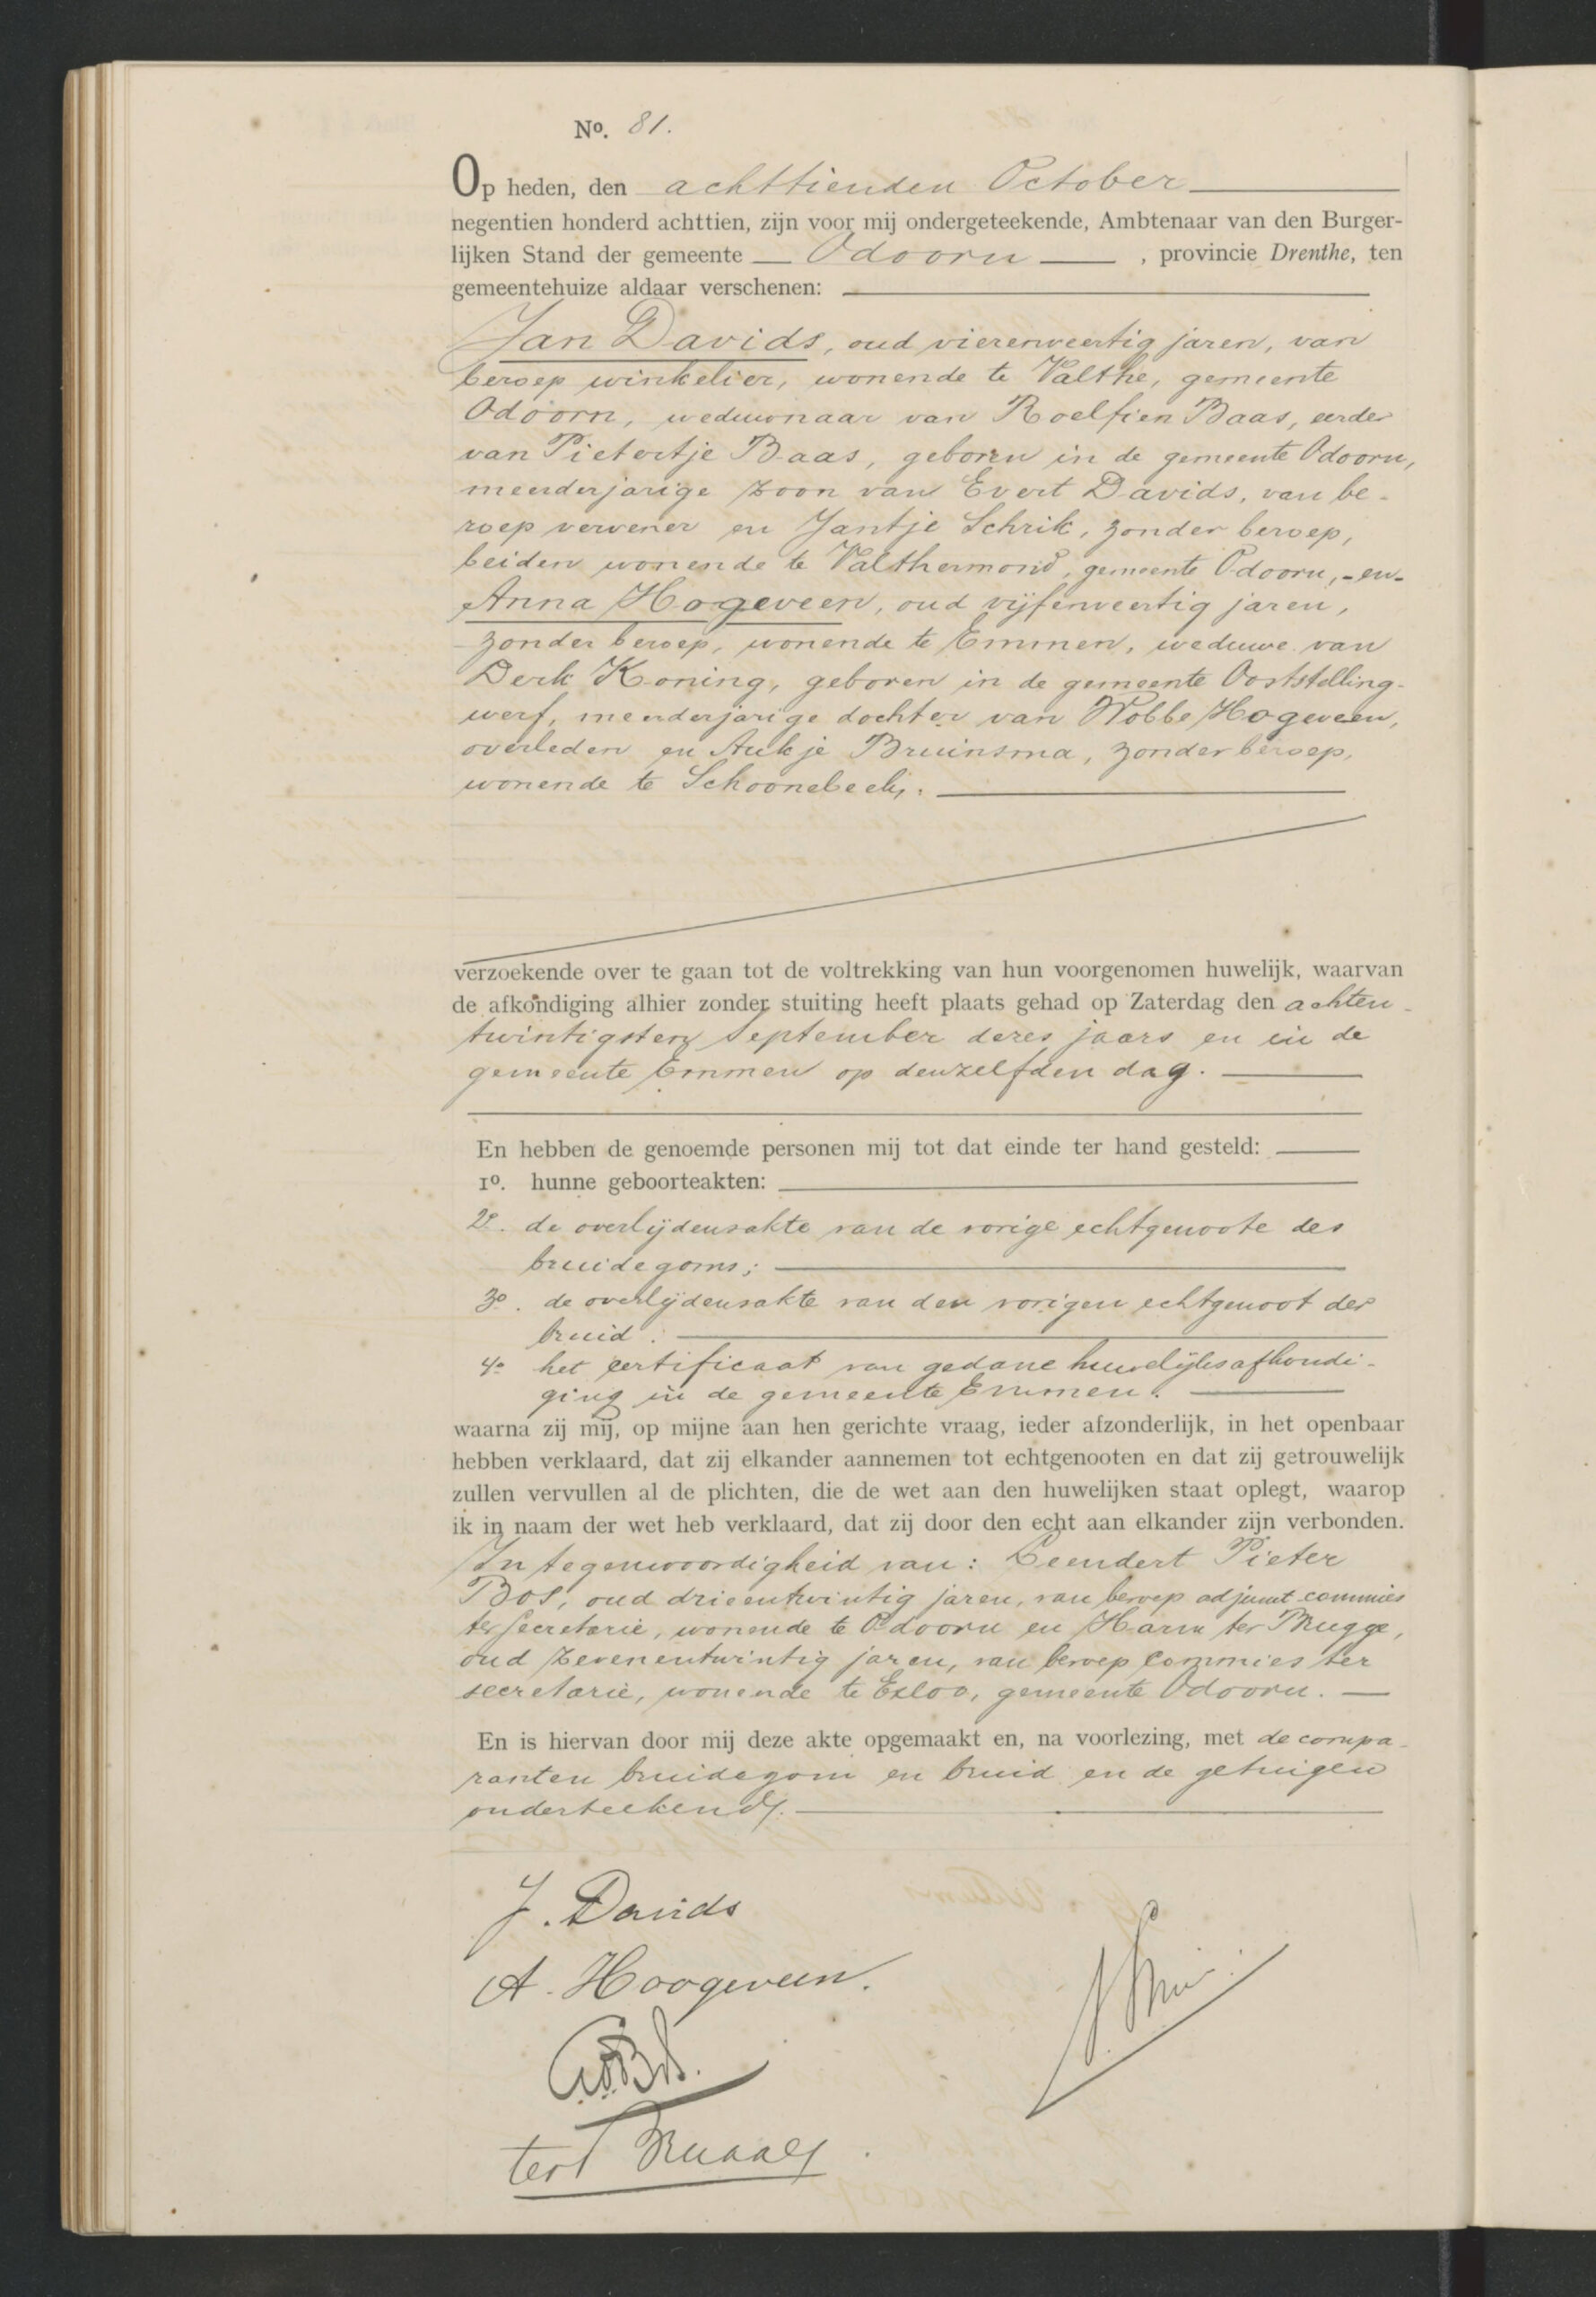 No. 81.
Op heden, den achttienden October
negentien honderd achttien, zijn voor mij ondergeteekende, Ambtenaar van den Burger-
lijken Stand der gemeente Odoorn, provincie Drenthe, ten
gemeentehuize aldaar verschenen:
Jan Davids, oud vierenveertig jaren, van
beroep winkelier, wonende te Valthe, gemeente
Odoorn, weduwnaar van Roelfien Baas, eerder
van Pietertje Baas, geboren in de gemeente Odoorn,
meerderjarige zoon van Evert Davids, van be-
roep vervener en Jantje Schrik, zonder beroep,
beiden wonende te Valthermond, gemeente Odoorn, - en -
Anna Hogeveen, oud vijfenveertig jaren,
zonder beroep, wonende te Emmen, weduwe van
Derk Koning, geboren in de gemeente Ooststelling-
werf, meerderjarige dochter van Wobbe Hogeveen,
overleden en Aukje Bruinsma, zonder beroep,
wonende te Schoonebeek;
verzoekende over te gaan tot de voltrekking van hun voorgenomen huwelijk, waarvan
de afkondiging alhier zonder stuiting heeft plaats gehad op Zaterdag den achten-
twintigsten September dezes jaars en in de
gemeente Emmen op denzelfden dag.
En hebben de genoemde personen mij tot dat einde ter hand gesteld:
1o. hunne geboorteakten:
2o. de overlijdensakte van de vorige echtgenoote des
bruidegoms;
3o. de overlijdensakte van den vorigen echtgenoot der
bruid:
4o het certificaat van gedane huwelijksafkondi-
ging in de gemeente Emmen.
waarna zij mij, op mijne aan hen gerichte vraag, ieder afzonderlijk, in het openbaar
hebben verklaard, dat zij elkander aannemen tot echtgenooten en dat zij getrouwelijk
zullen vervullen al de plichten, die de wet aan den huwelijken staat oplegt, waarop
ik in naam der wet heb verklaard, dat zij door den echt aan elkander zijn verbonden.
In tegenwoordigheid van: Leendert Pieter
Bos, oud drieentwintig jaren, van beroep adjunct commies
ter secretarie, wonende te Odoorn en Harm ter Brugge,
oud zevenentwintig jaren, van beroep commies ter
secretarie, wonende te Exloo, gemeente Odoorn.
En is hiervan door mij deze akte opgemaakt en, na voorlezing, met de compa-
ranten bruidegom en bruid en de getuigen
onderteekend.
J. Davids
A. Hoogeveen.